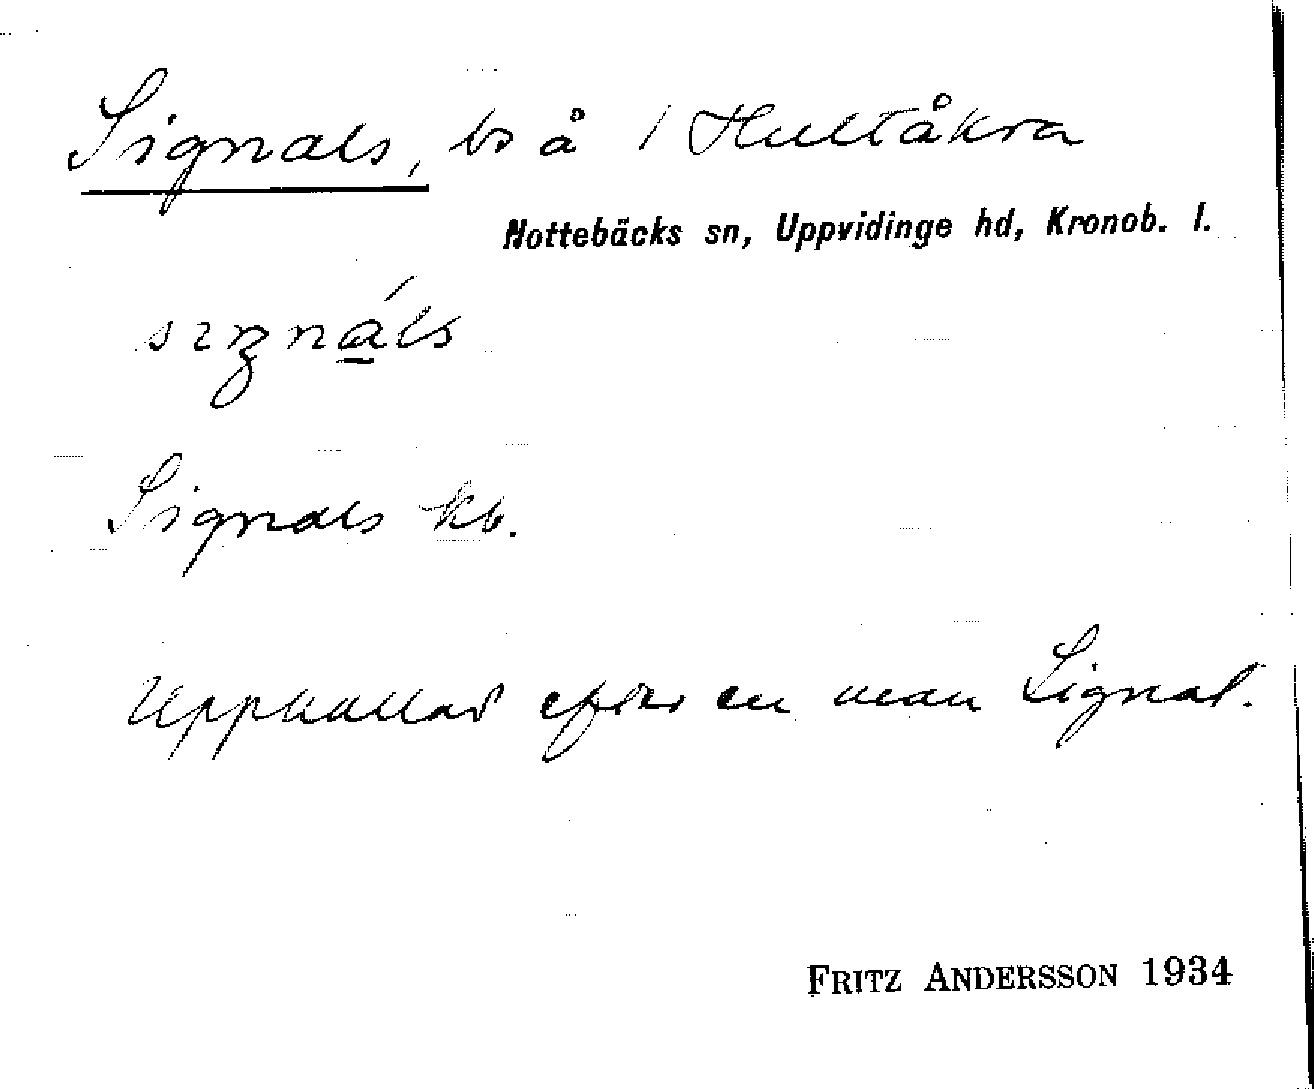 Signals, bs å 1 Hultåkra
Nottebäcks sn, Uppvidinge hd, Kronob. l.
Signals kb.
Uppkallad efter en man Signal.
FRITZ ANDERSSON 1934